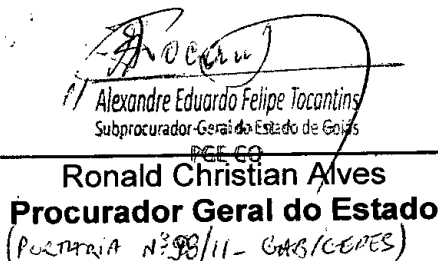 Alexandre Eduardo Felipe Tocantins
Subprocurador-Geral do Estado de Goiás
PGE-GO
Ronald Christian Alves
Procurador Geral do Estado
(PORTARIA Nº 98/11 - GAB/CEPES)